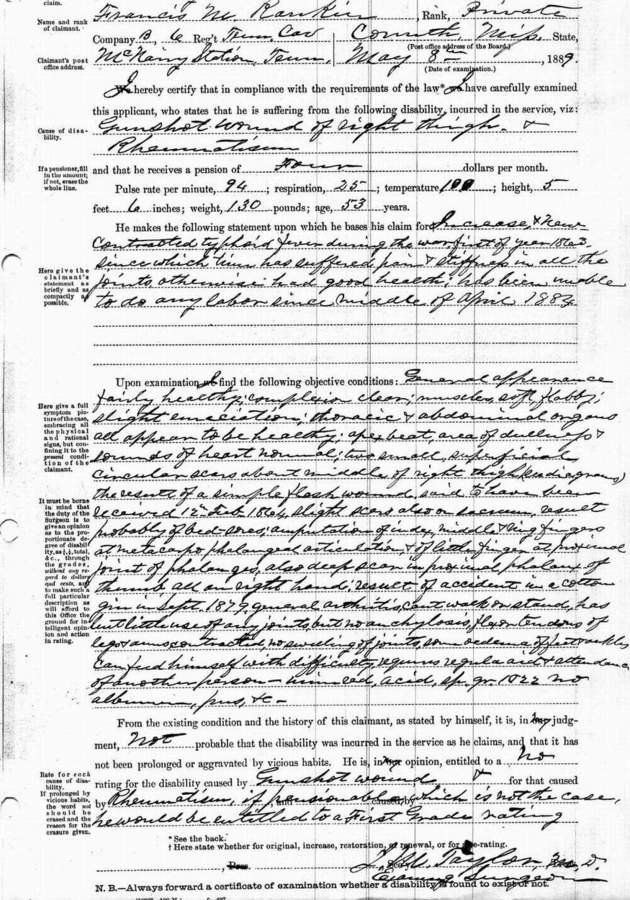 claim.
Name and rank of claimant.
Francis M. Rankin, Rank, Private
Company B, 6 Reg't Tenn Cav Corinth, Miss. State,
(Post office address of the Board.)
Claimant's post office address.
McNairy Station, Tenn, May 8th, 1889.
(Date of examination.)
I hereby certify that in compliance with the requirements of the law* I have carefully examined
this applicant, who states that he is suffering from the following disability, incurred in the service, viz:
Cause of disability.
Gunshot wound of right thigh &
Rheumatism
If a pensioner, fill in the amount; if not, erase the whole line.
and that he receives a pension of Four dollars per month.
Pulse rate per minute, 94; respiration, 25; temperature 100; height, 5
feet 6 inches; weight, 130 pounds; age, 53 years.
He makes the following statement upon which he bases his claim for Increase, & New
Here give the claimant's statement as briefly and as compactly as possible.
Contracted typhoid fever during the war, first of year 1863
since which time has suffered pain & stiffness in all the
joints, otherwise had good health; has been unable
to do any labor since middle of April 1884
Upon examination I find the following objective conditions: General appearance
Here give a full symptom picture of the case, embracing all the physical and rational signs, but confining it to the present condition of the claimant.
fairly healthy; complexion clear; muscles, soft, flabby;
slight emaciation; thoracic & abdominal organs
all appear to be healthy; apex beat, area of dullness &
sounds of heart normal; two small, superficial
circular scars about middle of right thigh (see diagram)
It must be borne in mind that the duty of the Surgeon is to give an opinion as to the proportionate degree of disability, as ½, ¾, total, &c., through the grades, without any regard to dollars and cents, and to make such a full particular description as will afford to this Office the ground for intelligent opinion and action in rating.
the result of a simple flesh wound, said to have been
received 12th Feb. 1864, slight scars also on sacrum, result
probably of bed-sores; amputation of index, middle & ring fingers
at metacarpo phalangeal articulation & of little finger at proximal
joint of phalanges, also deep scar in proximal phalanx of
thumb all on right hand; result of accident in a cotton
gin in Sept. 1879, general arthritis, cant walk or stand, has
but little use of any joints, but no anchylosis, flexor tendons of
legs & arms contracted, no swelling of joints, some oedema of feet & ankles
can feed himself with difficulty, requires regular aid & attendance
of another person – urine red, acid, sp. gr. 1022 no
albumen, pus, &c –
From the existing condition and the history of this claimant, as stated by himself, it is, in my judg-
ment, Not probable that the disability was incurred in the service as he claims, and that it has
not been prolonged or aggravated by vicious habits. He is, in my opinion, entitled to a No
Rate for each cause of disability.
rating for the disability caused by Gunshot wound, & for that caused
If prolonged by vicious habits, the word not should be erased and the reason for the erasure given.
by Rheumatism, if pensionable which is not the case,
he would be entitled to a First Grade rating
* See the back.
† Here state whether for original, increase, restoration, or renewal, or for re-rating.
Taylor, M.D.
Examining Surgeon
N. B.—Always forward a certificate of examination whether a disability is found to exist or not.